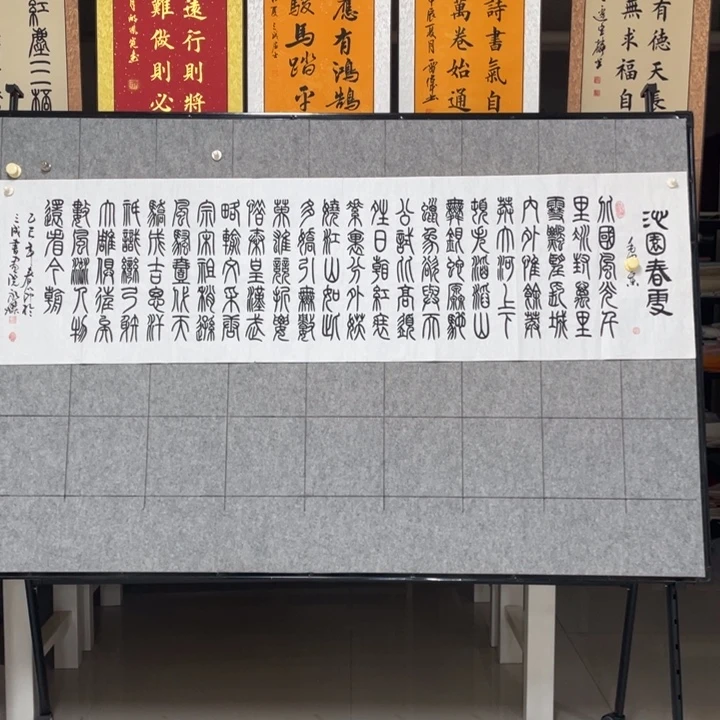 有德天長
無求福自
詩書氣自
萬卷始通
應有鴻鵠
駿馬踏平
遠行則將
難做則必
沁園春雪
北國風光千
里冰封萬里
雪飄望長城
內外惟餘莽
莽大河上下
頓失滔滔山
舞銀蛇原馳
蠟象欲與天
公試比高須
晴日看紅裝
素裹分外妖
嬈江山如此
多嬌引無數
英雄競折腰
惜秦皇漢武
略輸文采唐
宗宋祖稍遜
風騷一代天
驕成吉思汗
祇識彎弓射
大雕俱往矣
數風流人物
還看今朝